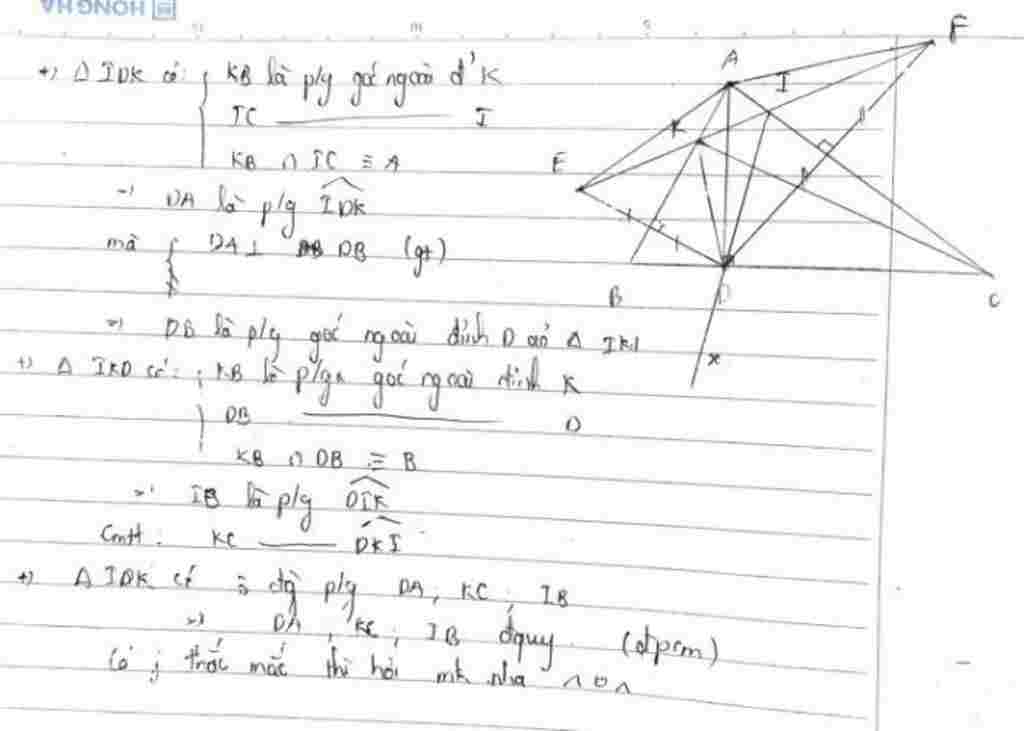 HONG HA
+) Δ IDK có: { KB là p/g góc ngoài đ' K
IC ——— I
KB ∩ IC ≡ A
=> DA là p/g IDK
mà { DA ⊥ DB (gt)
=> DB là p/g góc ngoài đỉnh D của Δ IKD
+) Δ IKD có: { KB là p/g góc ngoài đỉnh K
DB ——— D
KB ∩ DB ≡ B
=> IB là p/g DIK
Cmtt: KC ——— DKI
+) Δ IDK có 3 đg p/g DA, KC, IB
=> DA, KC, IB đquy (đpcm)
Có j thắc mắc thì hỏi mk nha ^ o ^
F
A
I
K
E
B
D
C
x